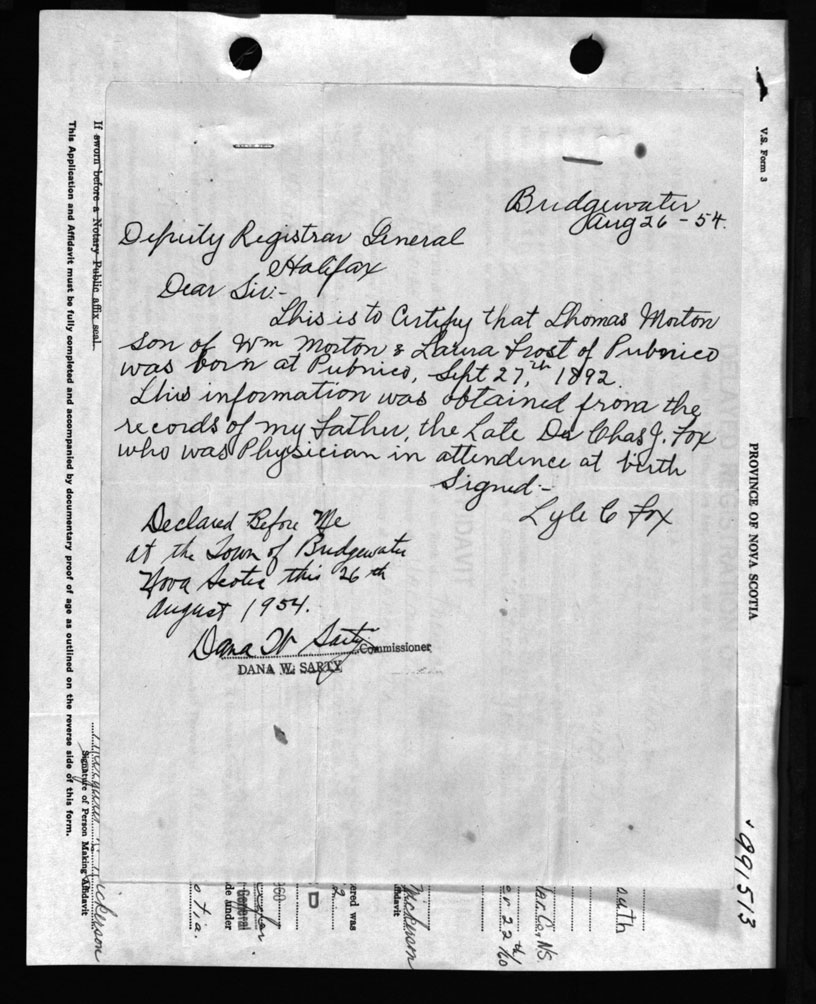 Bridgewater
Aug 26 - 54.
Deputy Registrar General
Halifax
Dear Sir:-
This is to Certify that Thomas Morton
son of Wm Morton & Laura Frost of Pubnico
was born at Pubnico, Sept 27,th 1892.
This information was obtained from the
records of my Father, the Late Dr Chas J. Fox
who was Physician in attendence at birth
Signed:-
Lyle C Fox
Declared Before Me
at the Town of Bridgewater
Nova Scotia this 26 th
August 1954.
Dana W Sarty Commissioner
DANA W. SARTY
V.S. Form 3
PROVINCE OF NOVA SCOTIA
991513
If sworn before a Notary Public affix seal.
This Application and Affidavit must be fully completed and accompanied by documentary proof of age as outlined on the reverse side of this form.
Nickerson
Signature of Person Making Affidavit
otia.
de under
General
960
D
ered was
2
ffidavit
Nickerson
22 th/60
Co. N.S.
outh